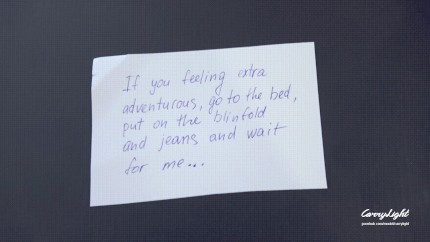 If you feeling extra
adventurous, go to the bed,
put on the blinfold
and jeans and wait
for me...
CarryLight
pornhub.com/model/carrylight